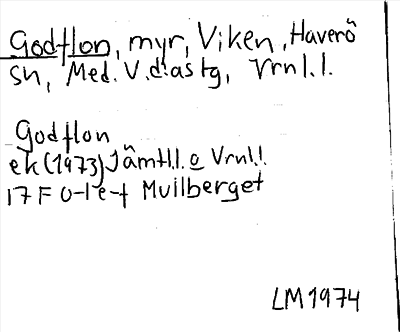 Godflon, myr, Viken, Haverö
sn, Med. V. diastg, Vrnl.l.
Godflon
ek (1973) Jämtl.l. o Vrnl.l.
17 F 0-1 e-f Mullberget
LM 1974